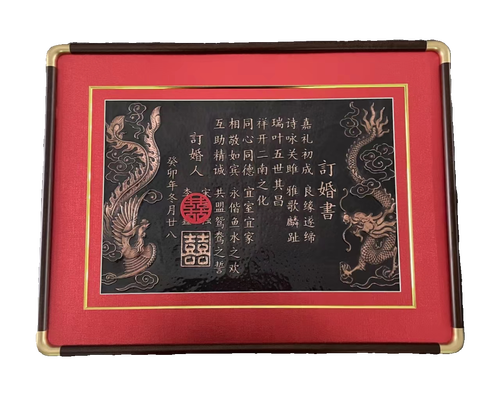 訂婚書
嘉礼初成 良缘遂缔
诗咏关雎 雅歌麟趾
瑞叶五世其昌
祥开二南之化
同心同德 宜室宜家
相敬如宾 永偕鱼水之欢
互助精诚 共盟鸳鸯之誓
訂婚人
癸卯年冬月廿八
囍